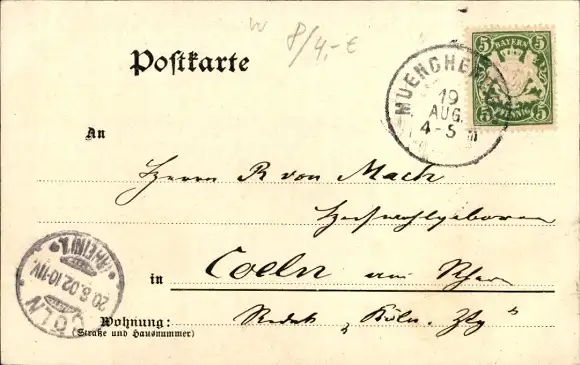 W 8/4,- €
Postkarte
5 BAYERN 5
5 PFENNIG 5
MUENCHEN
19
AUG.
4-5 N
An
Herrn R von Mach
Hochwohlgeboren
in Coeln am Rhein
CÖLN (RHEIN) 1.
20.8.02.10-11V.
Wohnung: Redak d. Köln. Ztg
(Straße und Hausnummer)